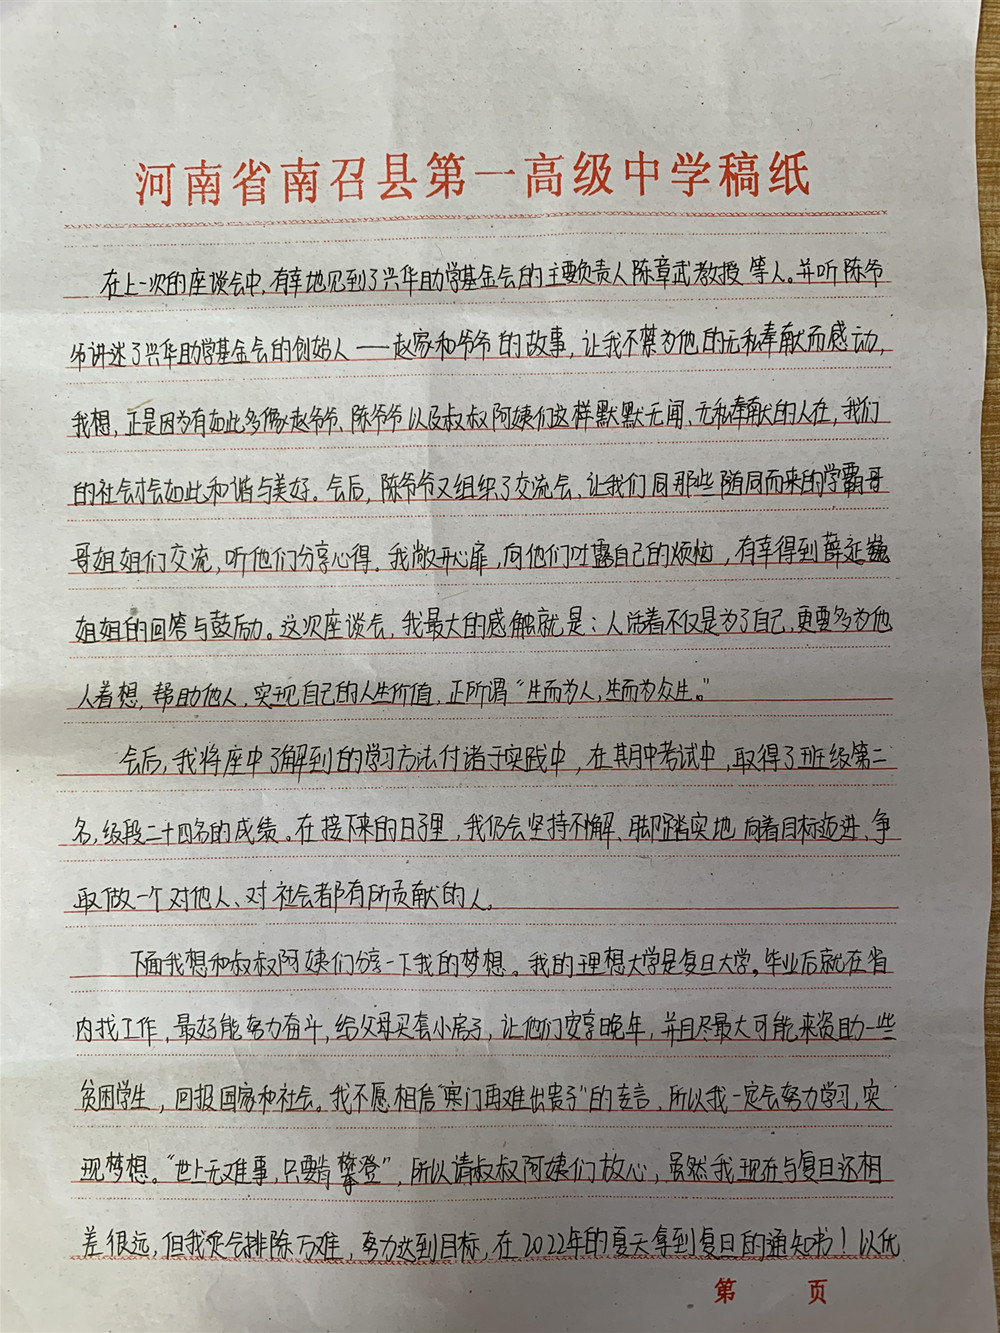 河南省南召县第一高级中学稿纸
在上一次的座谈会中,有幸地见到了兴华助学基金会的主要负责人陈章武教授等人。并听陈爷
爷讲述了兴华助学基金会的创始人——赵家和爷爷的故事,让我不禁为他的无私奉献而感动,
我想,正是因为有如此多像赵爷爷、陈爷爷以及叔叔阿姨们这样默默无闻、无私奉献的人在,我们
的社会才会如此和谐与美好。会后,陈爷爷又组织了交流会、让我们同那些随同而来的学霸哥
哥姐姐们交流,听他们分享心得。我敞开心扉,向他们吐露自己的烦恼,有幸得到薛延巍
姐姐的回答与鼓励。这次座谈会,我最大的感触就是:人活着不仅是为了自己,更要多为他
人着想,帮助他人,实现自己的人生价值,正所谓“生而为人,生而为众生。”
会后,我将座中了解到的学习方法付诸于实践中,在其月中考试中,取得了班级第二
名,级段二十四名的成绩。在接下来的日子里,我仍会坚持不懈、脚踏实地向着目标迈进、争
取做一个对他人、对社会都有所贡献的人。
下面我想和叔叔阿姨们分享一下我的梦想。我的理想大学是复旦大学。毕业后就在省
内找工作,最好能努力奋斗,给父母买套小房子,让他们安享晚年,并且尽最大可能来资助一些
贫困学生,回报国家和社会。我不愿相信“寒门再难出贵子”的言,所以我一定会努力学习,实
现梦想。“世上无难事,只要肯攀登”,所以请叔叔阿姨们放心,虽然我现在与复旦还相
差很远,但我定会排除万难,努力达到目标,在2022年的夏天拿到复旦的通知书!以优
第 页